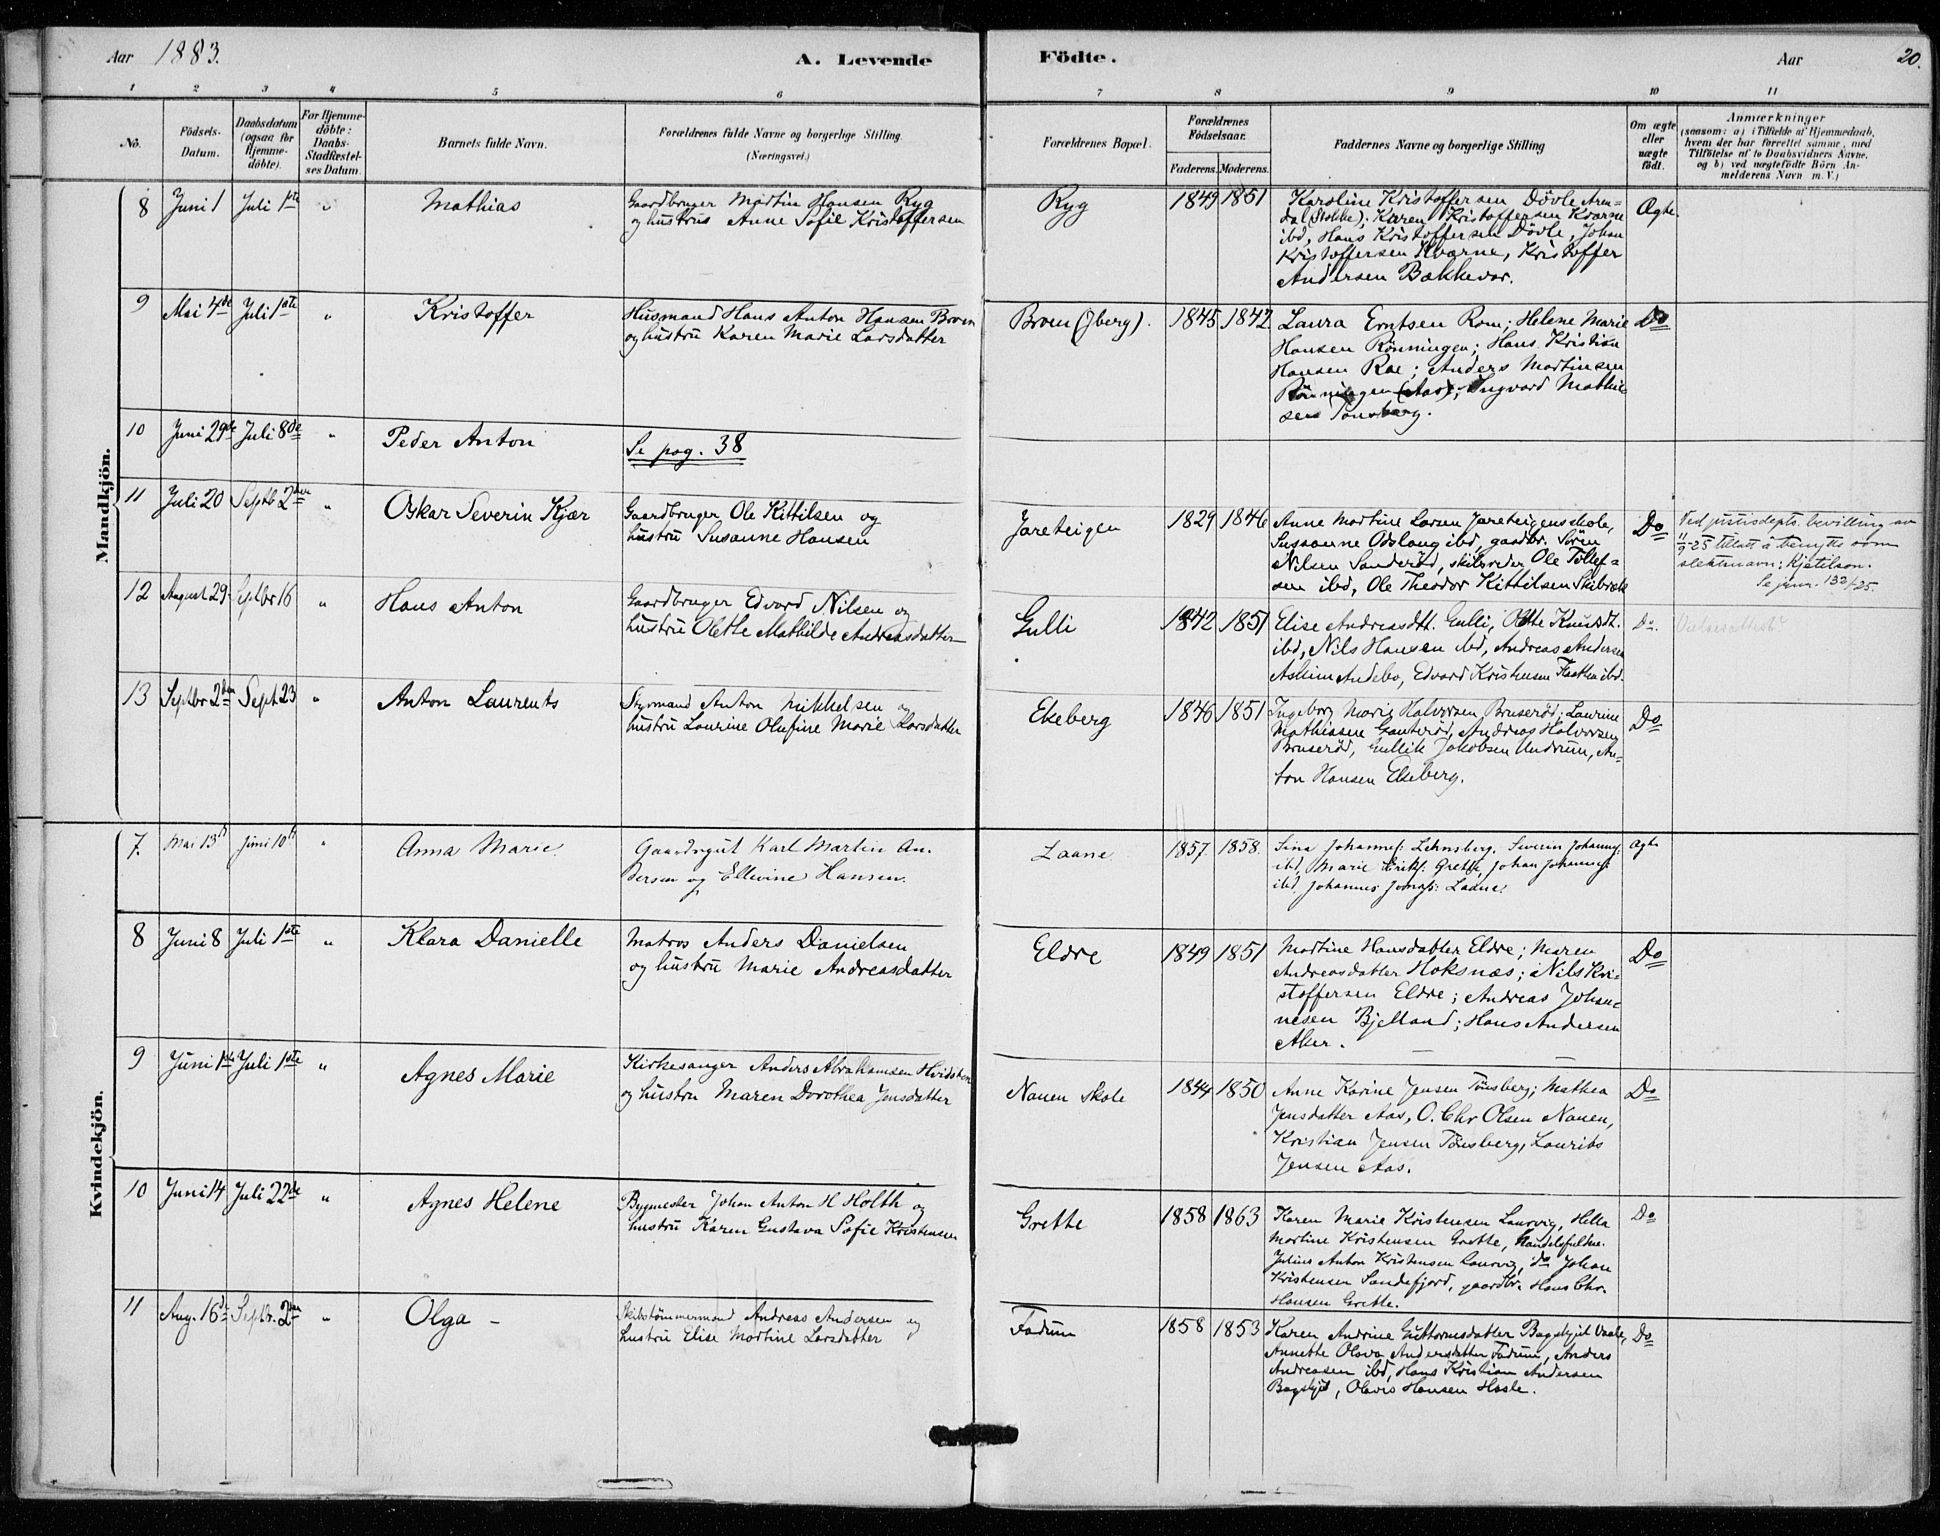 Aar 1883.
A. Levende Födte.
Aar
20.
1 2 3 4 5 6 7 8 9 10 11
No.
Födsels-Datum.
Daabsdatum (ogsaa for Hjemme-döbte).
For Hjemme-döbte: Daabs-Stadfæstel-ses Datum.
Barnets fulde Navn.
Forældrenes fulde Navne og borgerlige Stilling. (Næringsvei.)
Forældrenes Bopæl.
Forældrenes Födselsaar.
Faderens. Moderens.
Faddernes Navne og borgerlige Stilling
Om ægte eller uægte födt.
Anmærkninger
(saasom: a) i Tilfælde af Hjemmedaab,
hvem der har forrettet samme, med
Tilföielse af to Daabsvidners Navne,
og b) ved uægtefödte Börn An-
melderens Navn m. V.)
Mandkjön.
8 Juni 1 Juli 1ste " Mathias
Gaardbruger Martin Hansen Ryg
og hustrus Anne Sofie Kristoffersen
Ryg 1849 1851
Karoline Kristoffersen Dövle Aren=
dal (Stokke); Karen Kristoffersen Kværne
ibd, Hans Kristoffersen Dövle, Johan
Kristoffersen Kværne, Kristoffer
Andersen Bakkevar.
Ægte.
9 Mai 4de Juli 1ste " Kristoffer
Husmand Hans Anton Hansen Broen
og hustru Karen Marie Larsdatter
Broen (Jberg). 1845 1842
Laura Erntsen Rom; Helene Marie
Hansen Rönningen; Hans Kristian
Hansen Roe; Anders Martinsen
Rönningen (Aas); Ingvard Mathie
sen Tönsberg.
Do
10 Juni 29de Juli 8de " Peder Anton
Se pag. 38
11 Juli 20 Septb 2den " Oskar Severin Kjær
Gaardbruger Ole Kittilsen og
hustru Susanne Hansen
Jareteigen 1829 1846
Anne Martine Larsen Jareteigens skole,
Susanne Odslaug ibd, gaardbr. Sören
Nilsen Sanderöd, skibsreder Ole Tollef=
sen ibd, Ole Theodor Kittilsen Skibræk
Do
Ved justisdepts. bevilling av
11/9-25 tillatt å benytte som
slektsnavn: Kjetilson.
Se jrnr. 132/25.
12 August 29. Septbr 16 " Hans Anton
Gaardbruger Edvard Nilsen og
hustru Olette Mathilde Andreasdatter
Gulli 1842 1851
Elise Andreasdtt. Gulli, Olette Knudsdt.
ibd, Nils Hansen ibd, Andreas Andersen
Askim Andebo, Edvard Kristensen Flaatten ibd.
Do.
13 Septbr 2den Sept 23 " Anton Laurents
Styrmand Anton Mikkelsen og
hustru Laurine Olufine Marie Larsdatter
Ekeberg 1846 1851
Ingeborg Marie Halvorsen Bruseröd; Laurine
Mathiasen Gauteröd, Andreas Halvorsen
Bruseröd, Gullik Jakobsen Undrum, An=
ton Hansen Ekeberg.
Do
Kvindekjön.
7. Mai 13de Juni 10de " Anna Marie.
Gaardsgut Karl Martin An-
dersen og Ellevine Hansen.
Laane 1857. 1858.
Sina Johannes: Lehnsberg, Severin Johannes:
ibd, Marie Eriks: Grette, Johan Johannes:
ibd. Johannes Jonas: Laane.
ægte
8 Juni 8 Juli 1ste " Klara Danielle
Matros Anders Danielsen
og hustru Marie Andreasdatter
Eldre 1849 1851
Martine Hansdatter Eldre; Maren
Andreasdatter Hoksnæs; Nils Kri=
stoffersen Eldre; Andreas Johan=
nesen Bjelland; Hans Andersen
Aker.
Do
9 Juni 1ste Juli 1ste " Agnes Marie
Kirkesanger Anders Abrahamsen Hvidsten
og hustru Maren Dorothea Jensdatter
Nauen Skole 1844 1850
Anne Karine Jensen Tönsberg; Mathea
Jensdatter Aas, O. Chr Olsen Nauen,
Kristian Jensen Tönsberg, Laurits
Jensen Aas.
Do
10 Juni 14 Juli 22de " Agnes Helene
Bygmester Johan Anton H Holth og
hustru Karen Gustava Sofie Kristensen
Grette 1858 1863
Karen Marie Kristensen Laurvig, Hella
Martine Kristensen Grette, handelsfuldm.
Julius Anton Kristensen Laurvig, do Johan
Kristensen Sandefjord, gaardbr. Hans Chr.
Hansen Grette.
Do
11 Aug. 16de Septbr. 2den " Olga -
Skibstömmermand Andreas Andersen og
hustru Elise Martine Larsdatter
Fadum 1858 1853
Karen Andrine Guttormsdatter Bogskjet Vaale,
Annette Olava Andersdatter Fadum, Anders
Andreasen ibd, Hans Kristian Andersen
Bogskjet, Olavis Hansen Hasle.
Do